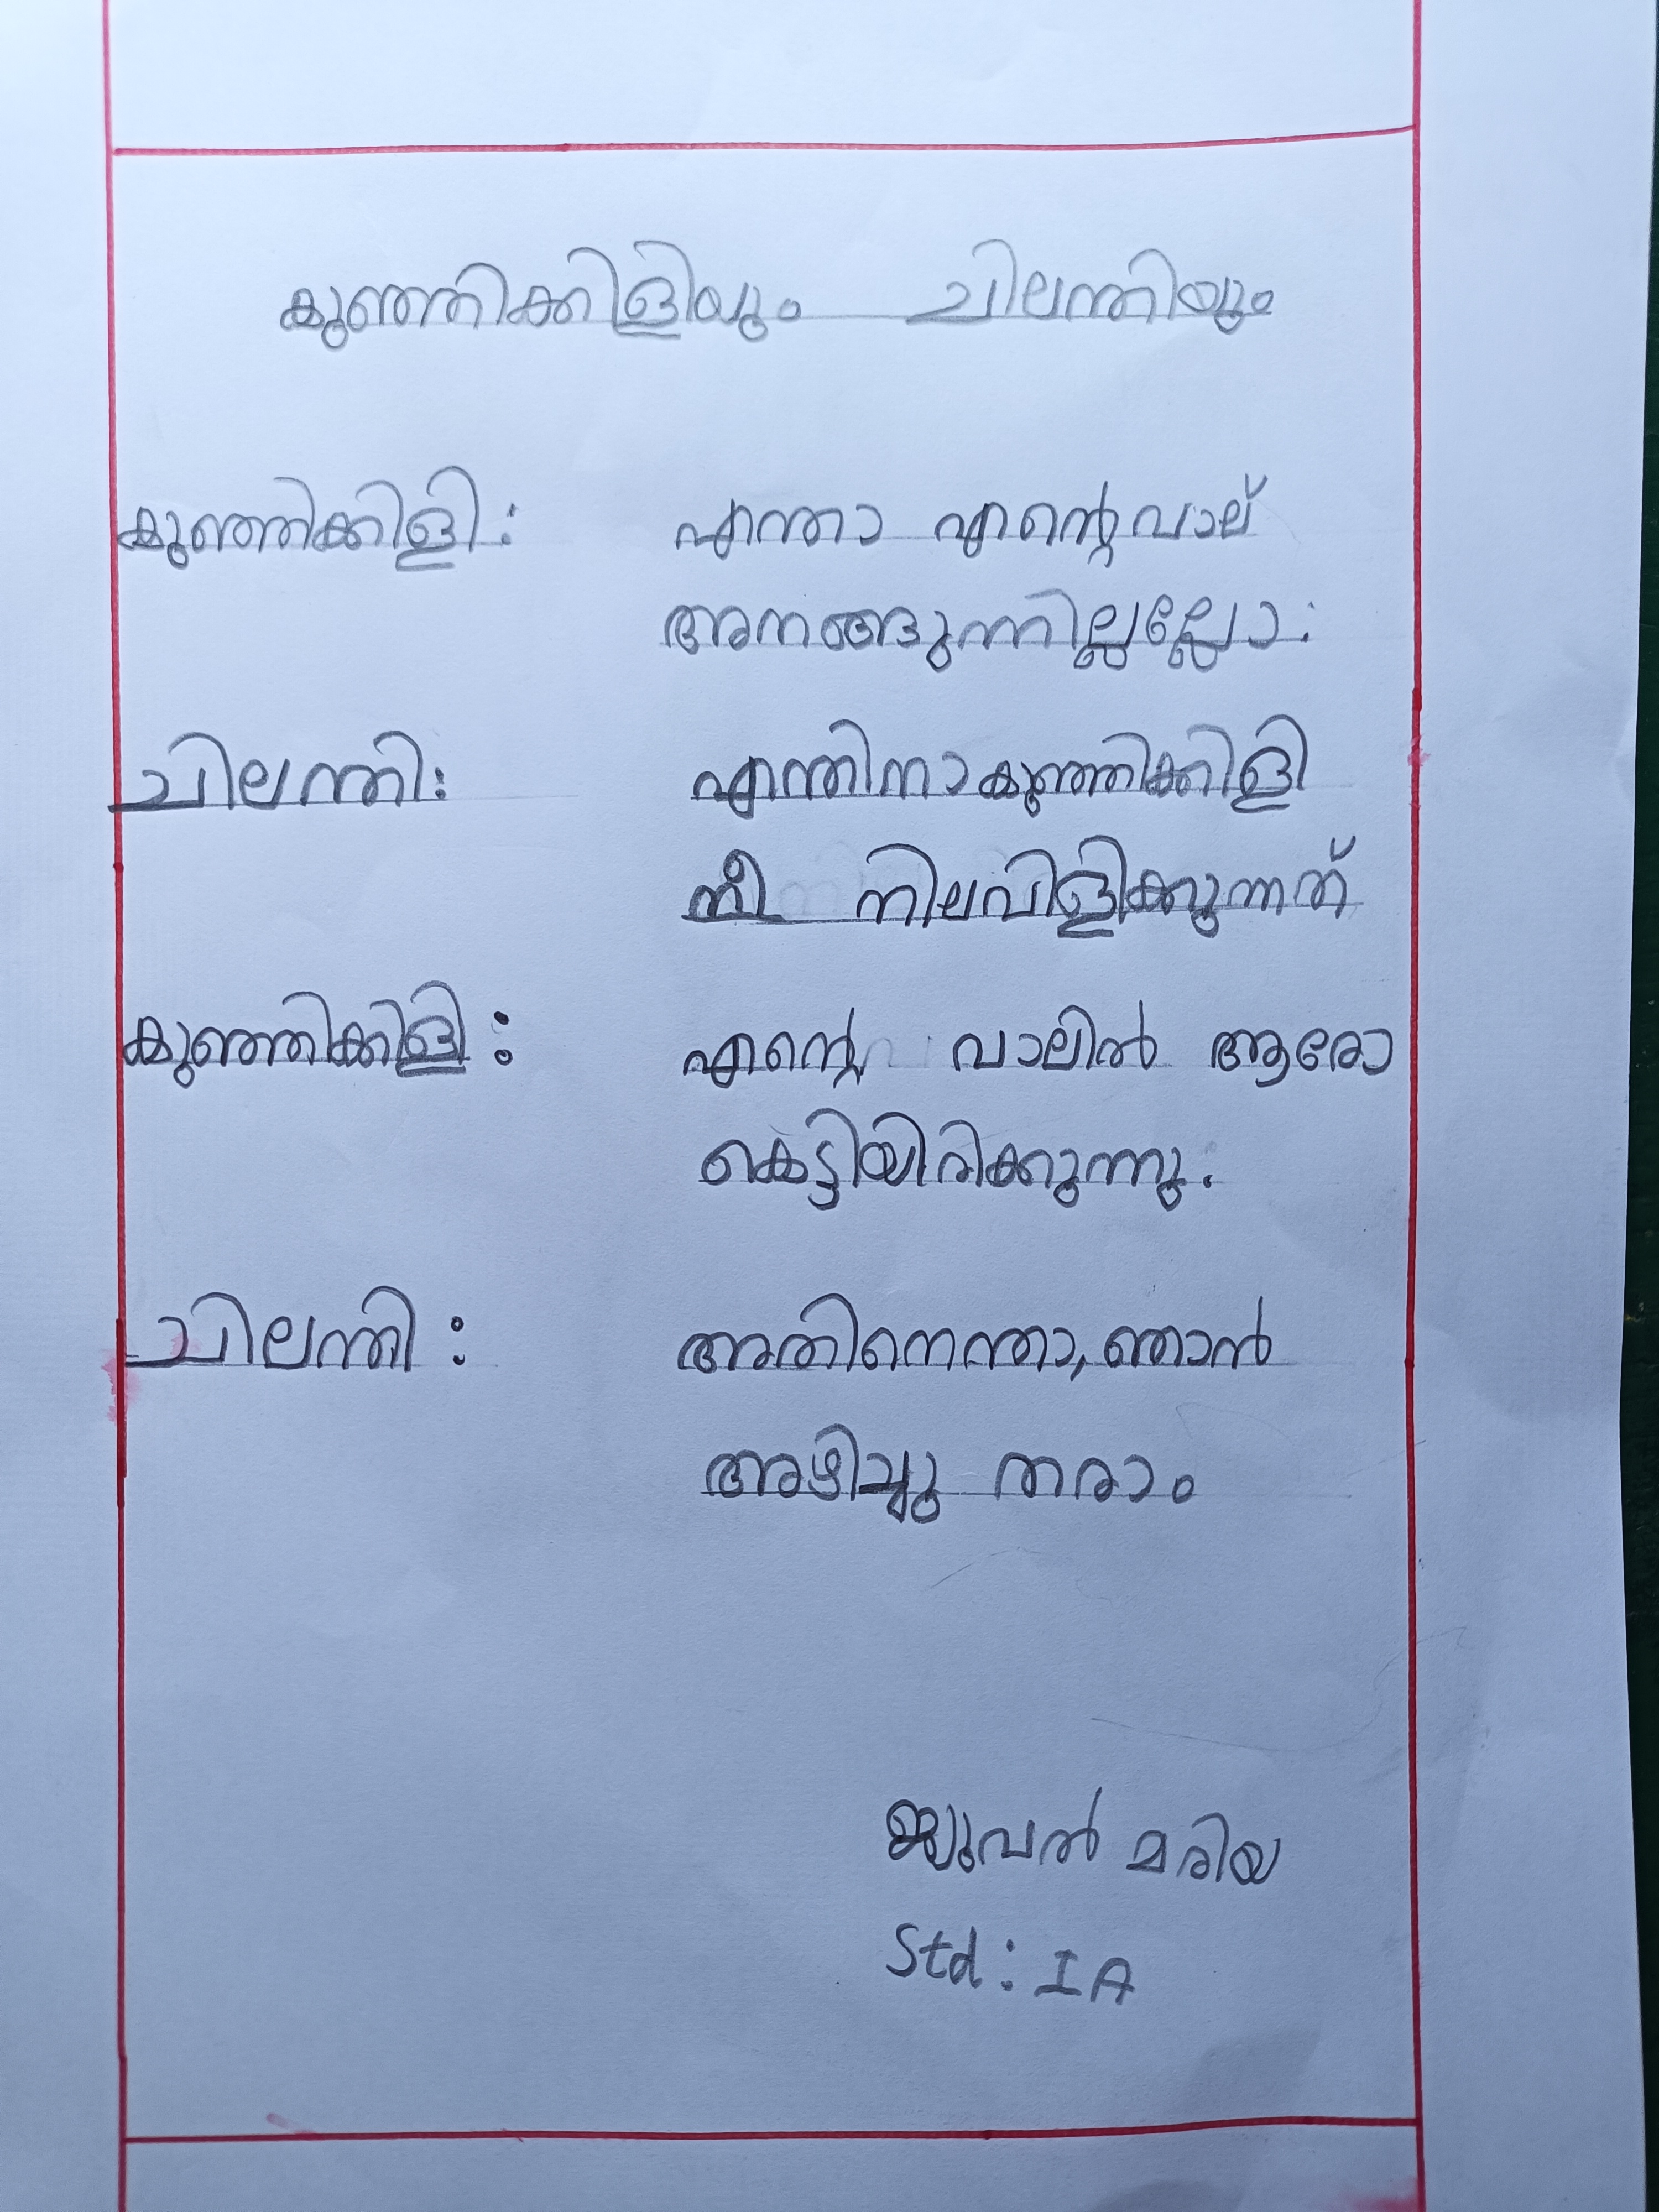 കുഞ്ഞിക്കിളിയും ചിലന്തിയും
കുഞ്ഞിക്കിളി: എന്താ എന്റെ വാല്
അനങ്ങുന്നില്ലല്ലോ:
ചിലന്തി: എന്തിനാ കുഞ്ഞിക്കിളി
നീ നിലവിളിക്കുന്നത്
കുഞ്ഞിക്കിളി: എന്റെ വാലിൽ ആരോ
കെട്ടിയിരിക്കുന്നു.
ചിലന്തി: അതിനെന്താ, ഞാൻ
അഴിച്ചു തരാം
ജ്യുവൽ മരിയ
Std: I A